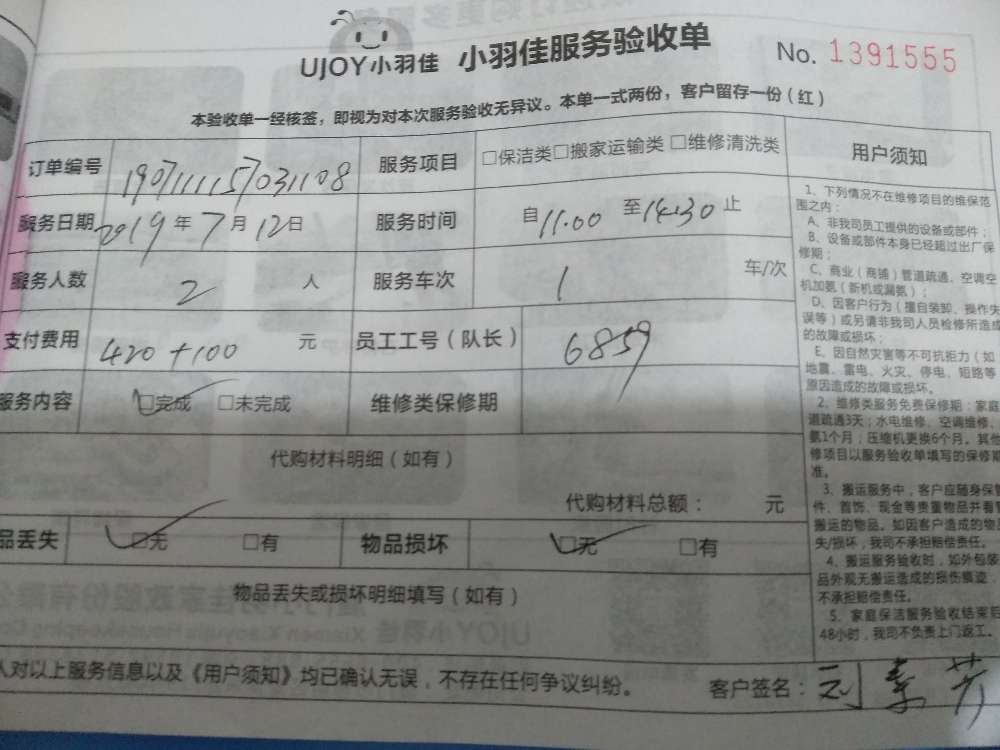 UJOY小羽佳 小羽佳服务验收单 No. 1391555
本验收单一经核签，即视为对本次服务验收无异议。本单一式两份，客户留存一份（红）
订单编号 190711157031108 服务项目 □保洁类□搬家运输类 □维修清洗类 用户须知
服务日期 2019年7月12日 服务时间 自11.00至14.30止
服务人数 2 人 服务车次 1 车/次
支付费用 420+100 元 员工工号（队长） 6859
服务内容 □完成 □未完成 维修类保修期
代购材料明细（如有）
代购材料总额： 元
品丢失 □无 □有 物品损坏 □无 □有
物品丢失或损坏明细填写（如有）
人对以上服务信息以及《用户须知》均已确认无误，不存在任何争议纠纷。 客户签名：
1、下列情况不在维修项目的维保范
围之内：
A、非我司员工提供的设备或部件；
B、设备或部件本身已经超过出厂保
修期；
C、商业（商铺）管道疏通、空调空
机加氨（新机或漏氨）；
D、因客户行为（擅自装卸、操作失
误等）或另请非我司人员检修所造成
的故障或损坏；
E、因自然灾害等不可抗拒力（如
地震、雷电、火灾、停电、短路等
原因造成的故障或损坏。
2、维修类服务免费保修期：家庭
道疏通3天；水电维修、空调维修、
氨1个月；压缩机更换6个月。其他
修项目以服务验收单填写的保修期
准。
3、搬运服务中，客户应随身保管
件、首饰、现金等贵重物品并看管
搬运的物品。如因客户造成的物品
失/损坏，我司不承担赔偿责任。
4、搬运服务验收时，如外包装
品外观无搬运造成的损伤痕迹，
不承担赔偿责任。
5、家庭保洁服务验收结束后
48小时，我司不负责上门返工。